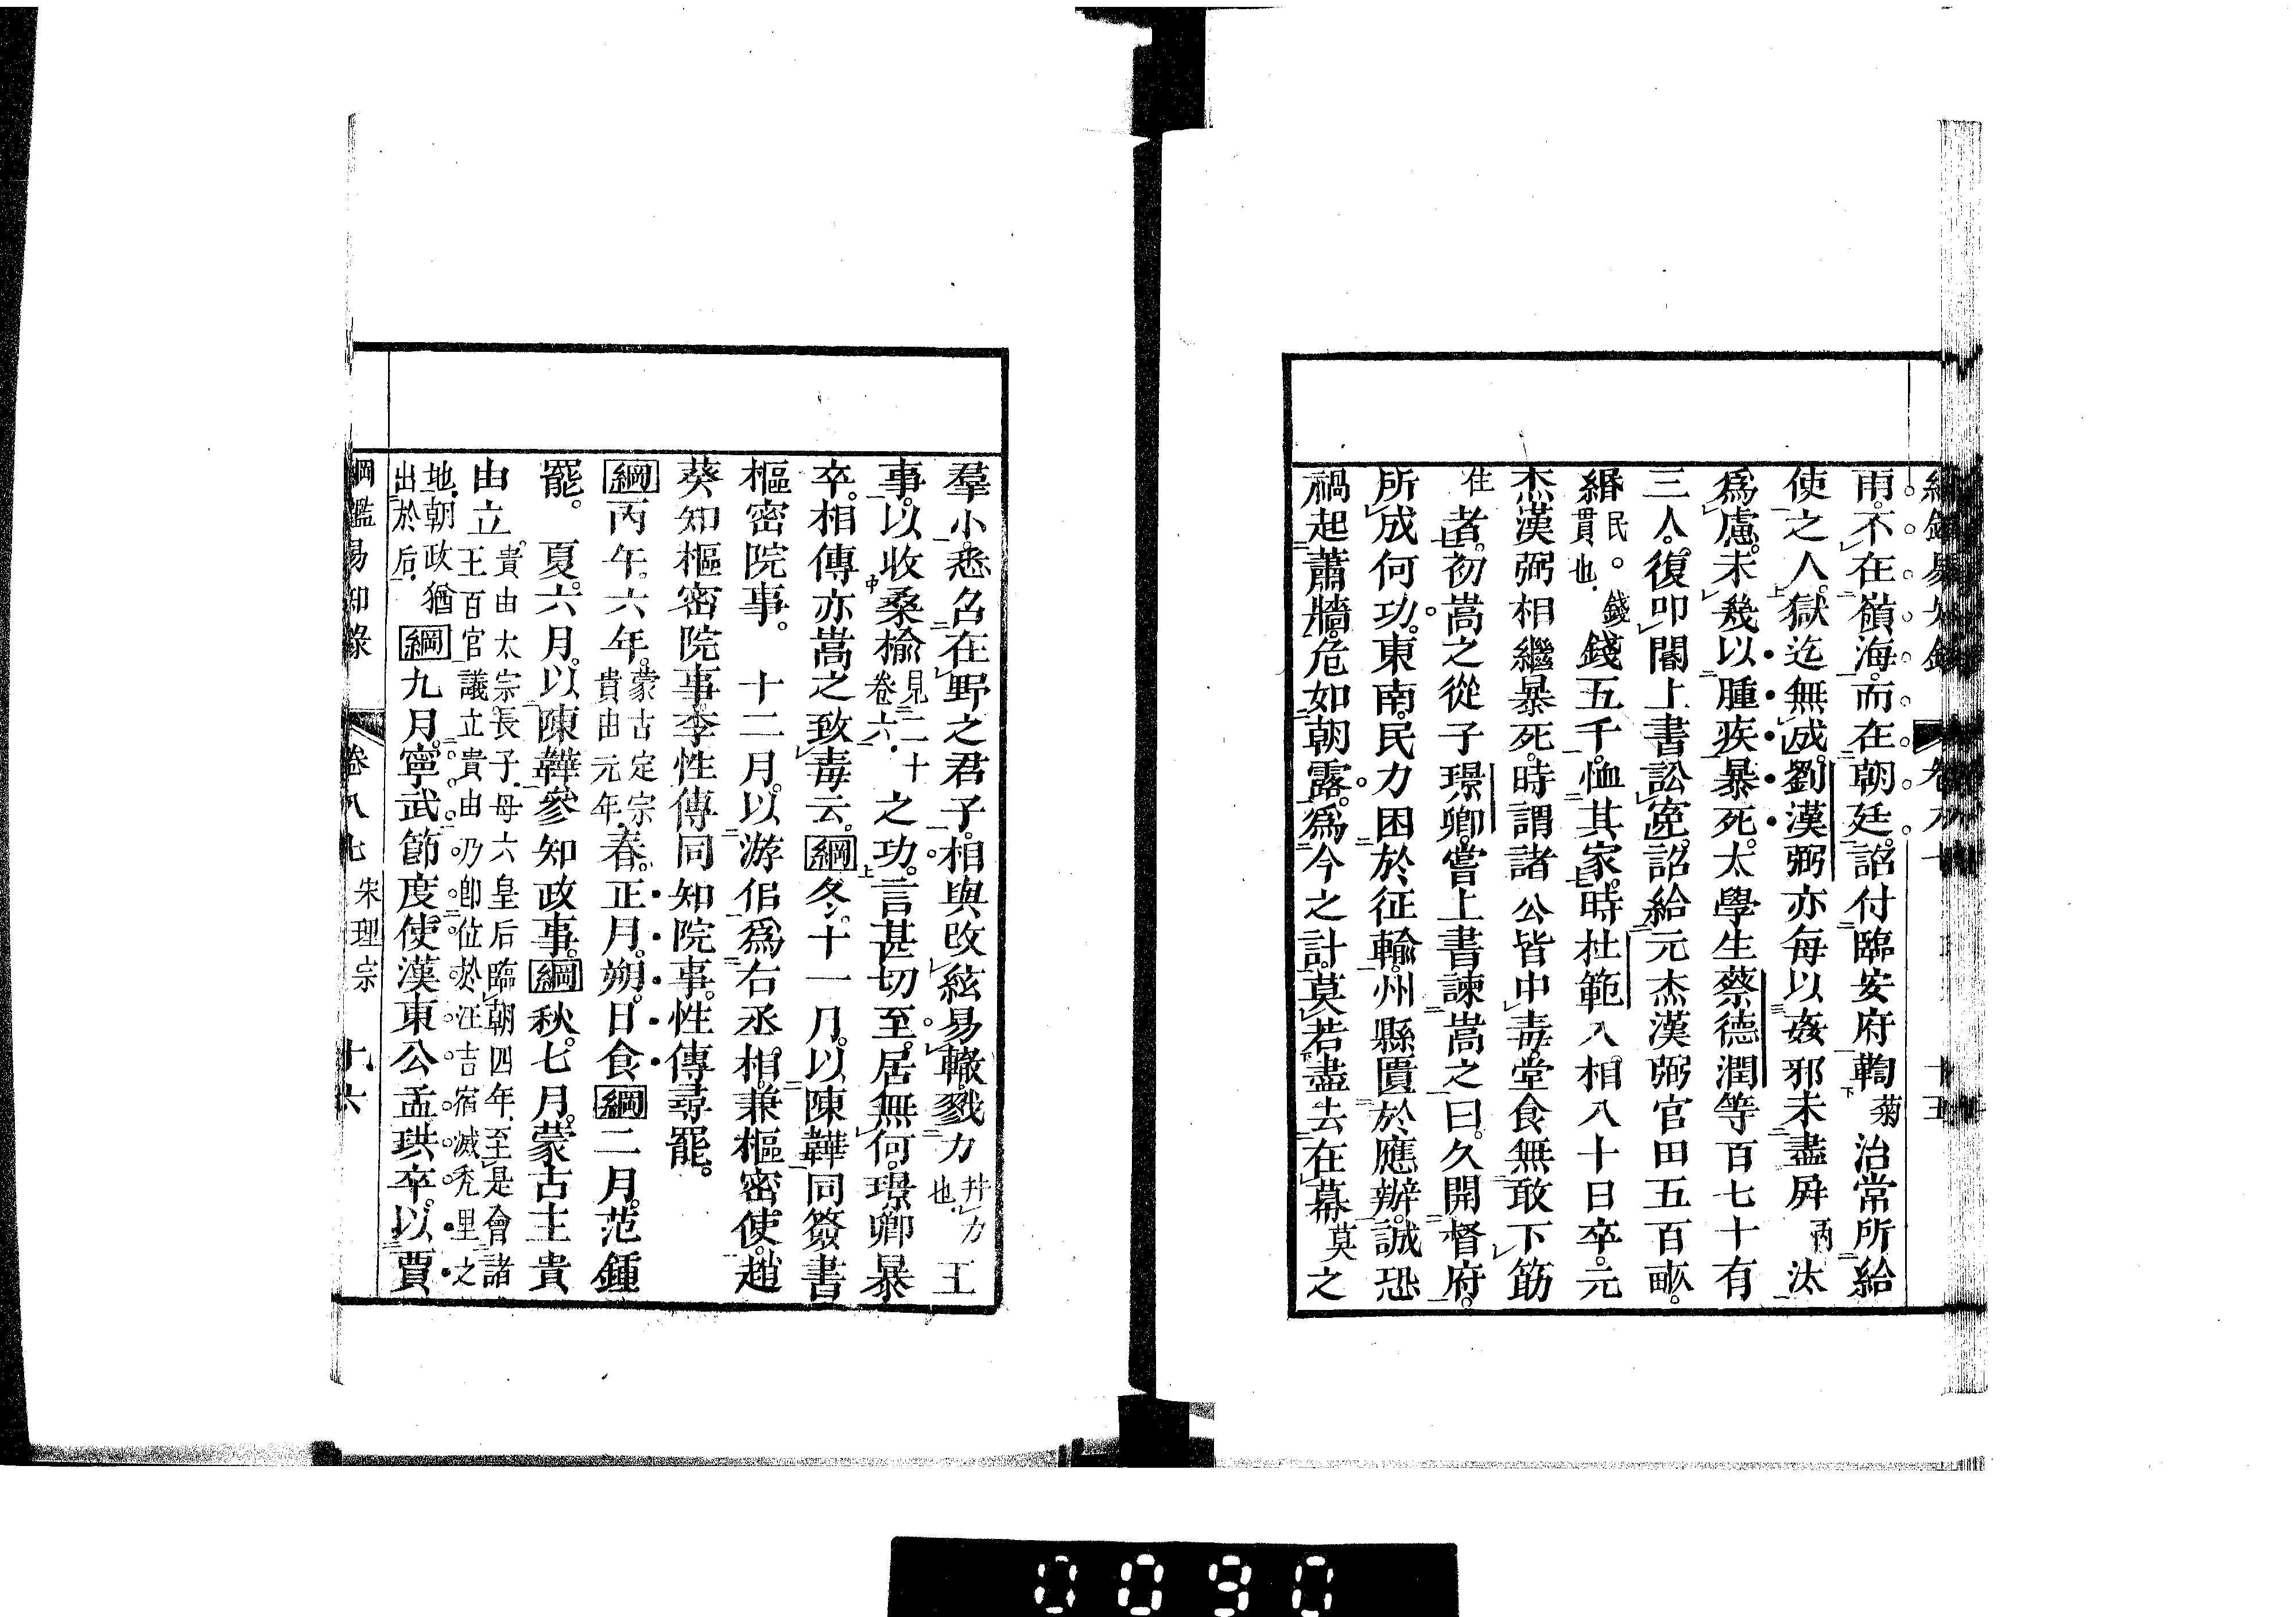 雨。不在嶺海。而在朝廷。詔付臨安府鞫菊治常所給
使之人。獄迄無成。劉漢弼亦每以姦邪未盡屛丙汰
爲慮。未幾以腫疾暴死。太學生蔡德潤等百七十有
三人。復叩閽上書訟寃。詔給元杰漢弼官田五百畝。
緡民。錢貫也。錢五千。恤其家。時杜範入相八十日卒。元
杰漢弼相繼暴死。時謂諸公皆中毒。堂食無敢下筯
往者。初嵩之從子璟卿。嘗上書諫嵩之曰。久開督府。
所成何功。東南民力困於征輸。州縣匱於應辦。誠恐
禍起蕭牆。危如朝露。爲今之計。莫若盡去在幕莫之
羣小。悉召在野之君子。相與改絃易轍。戮力幷力也。王
事。以收桑榆見二十卷六。之功。言甚切至。居無何。璟卿暴
卒。相傳亦嵩之致毒云。綱冬。十一月。以陳韡同簽書
樞密院事。 十二月。以游佀爲右丞相。兼樞密使。趙
葵知樞密院事李性傳同知院事。性傳尋罷。
綱丙午。六年。蒙古定宗貴由元年。春。正月。朔。日食綱二月。范鍾
罷。 夏。六月。以陳韡參知政事。綱秋。七月。蒙古主貴
由立。貴由太宗長子。母六皇后臨朝四年。至是會諸王百官。議立貴由。乃卽位於汪吉宿滅禿里之
地。朝政猶出於后。綱九月。寧武節度使漢東公孟珙卒。以賈
綱鑑易知錄 卷八七 宋理宗 十六